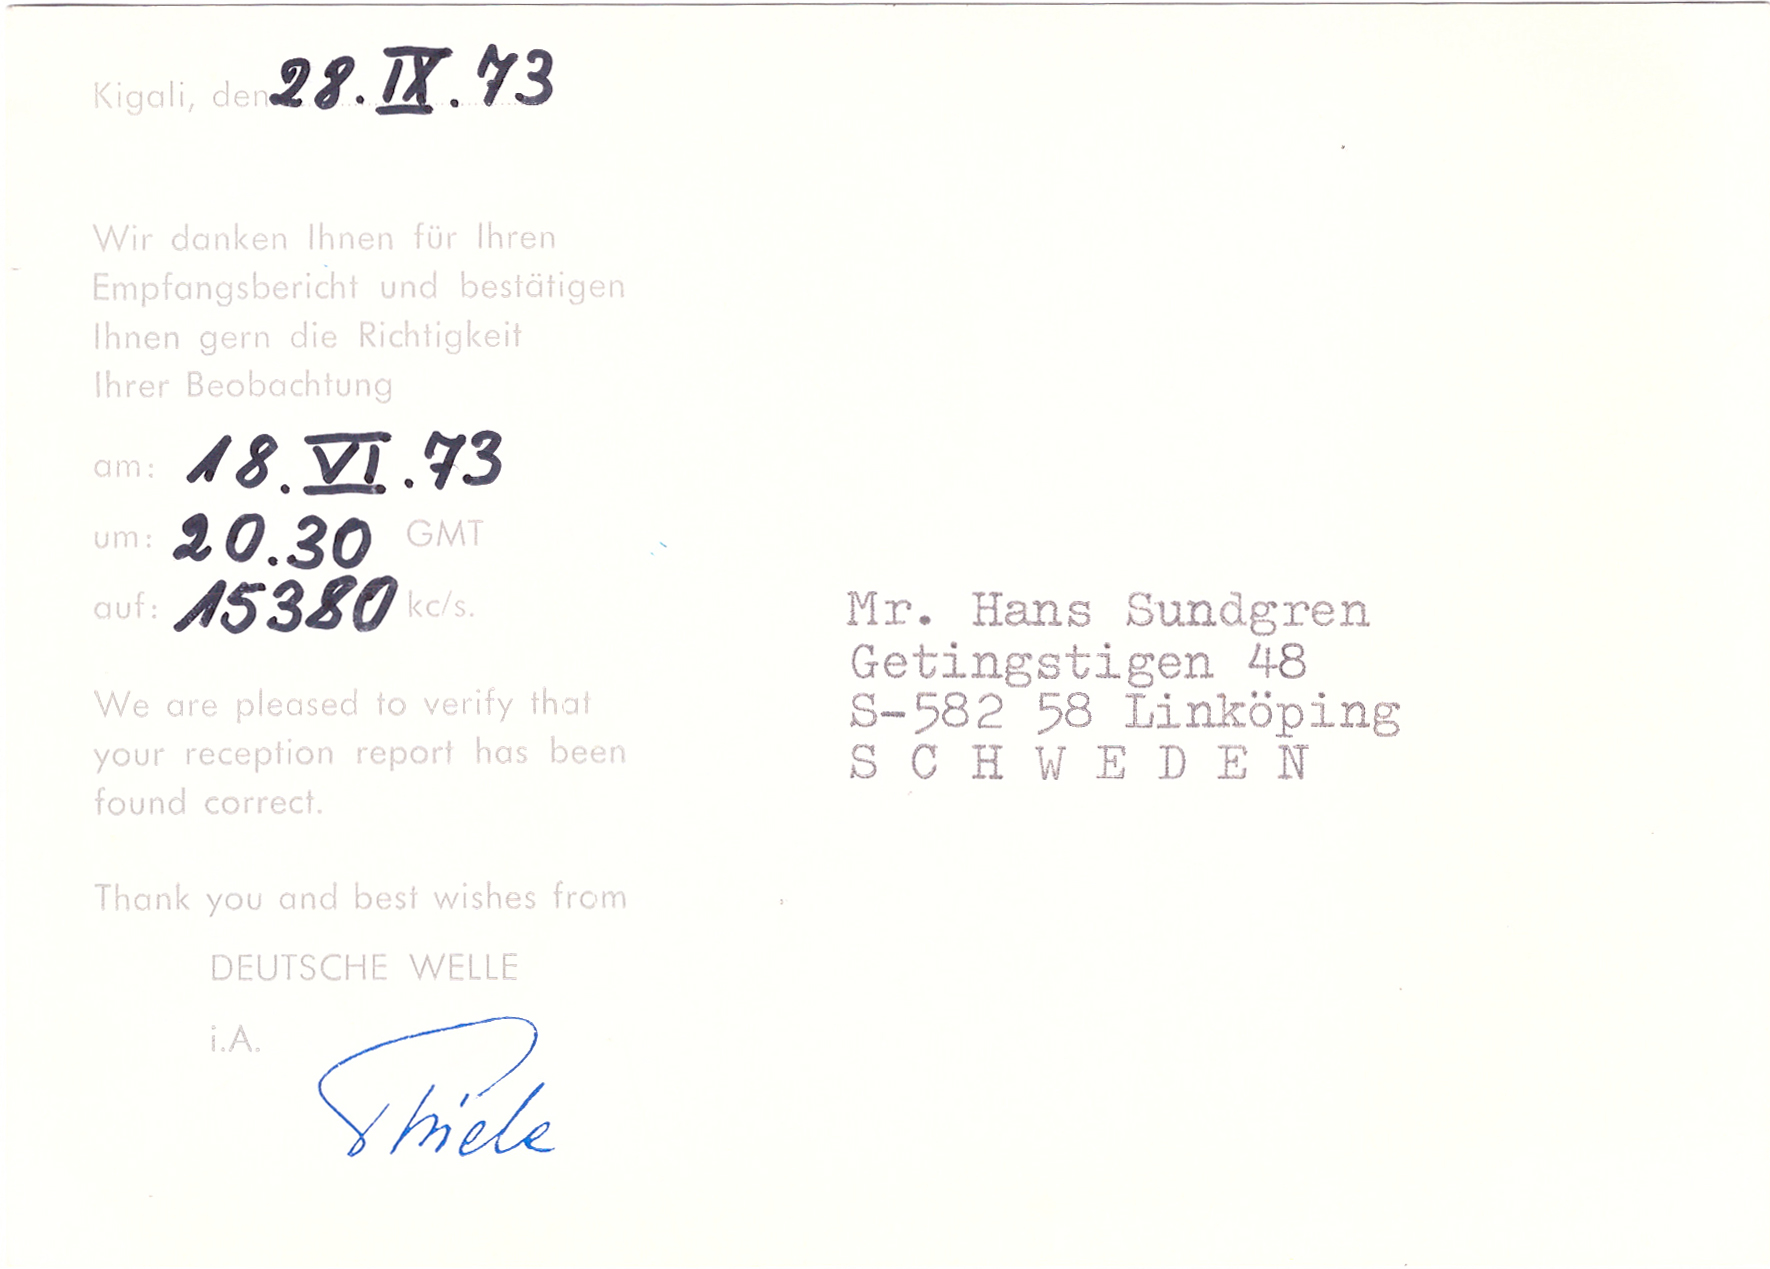 Kigali, den 28.IX.73
Wir danken Ihnen für Ihren
Empfangsbericht und bestätigen
Ihnen gern die Richtigkeit
Ihrer Beobachtung
am: 18.VI.73
um: 20.30 GMT
auf: 15380 kc/s.
We are pleased to verify that
your reception report has been
found correct.
Thank you and best wishes from
DEUTSCHE WELLE
i.A.
Thiele
Mr. Hans Sundgren
Getingstigen 48
S-582 58 Linköping
S C H W E D E N